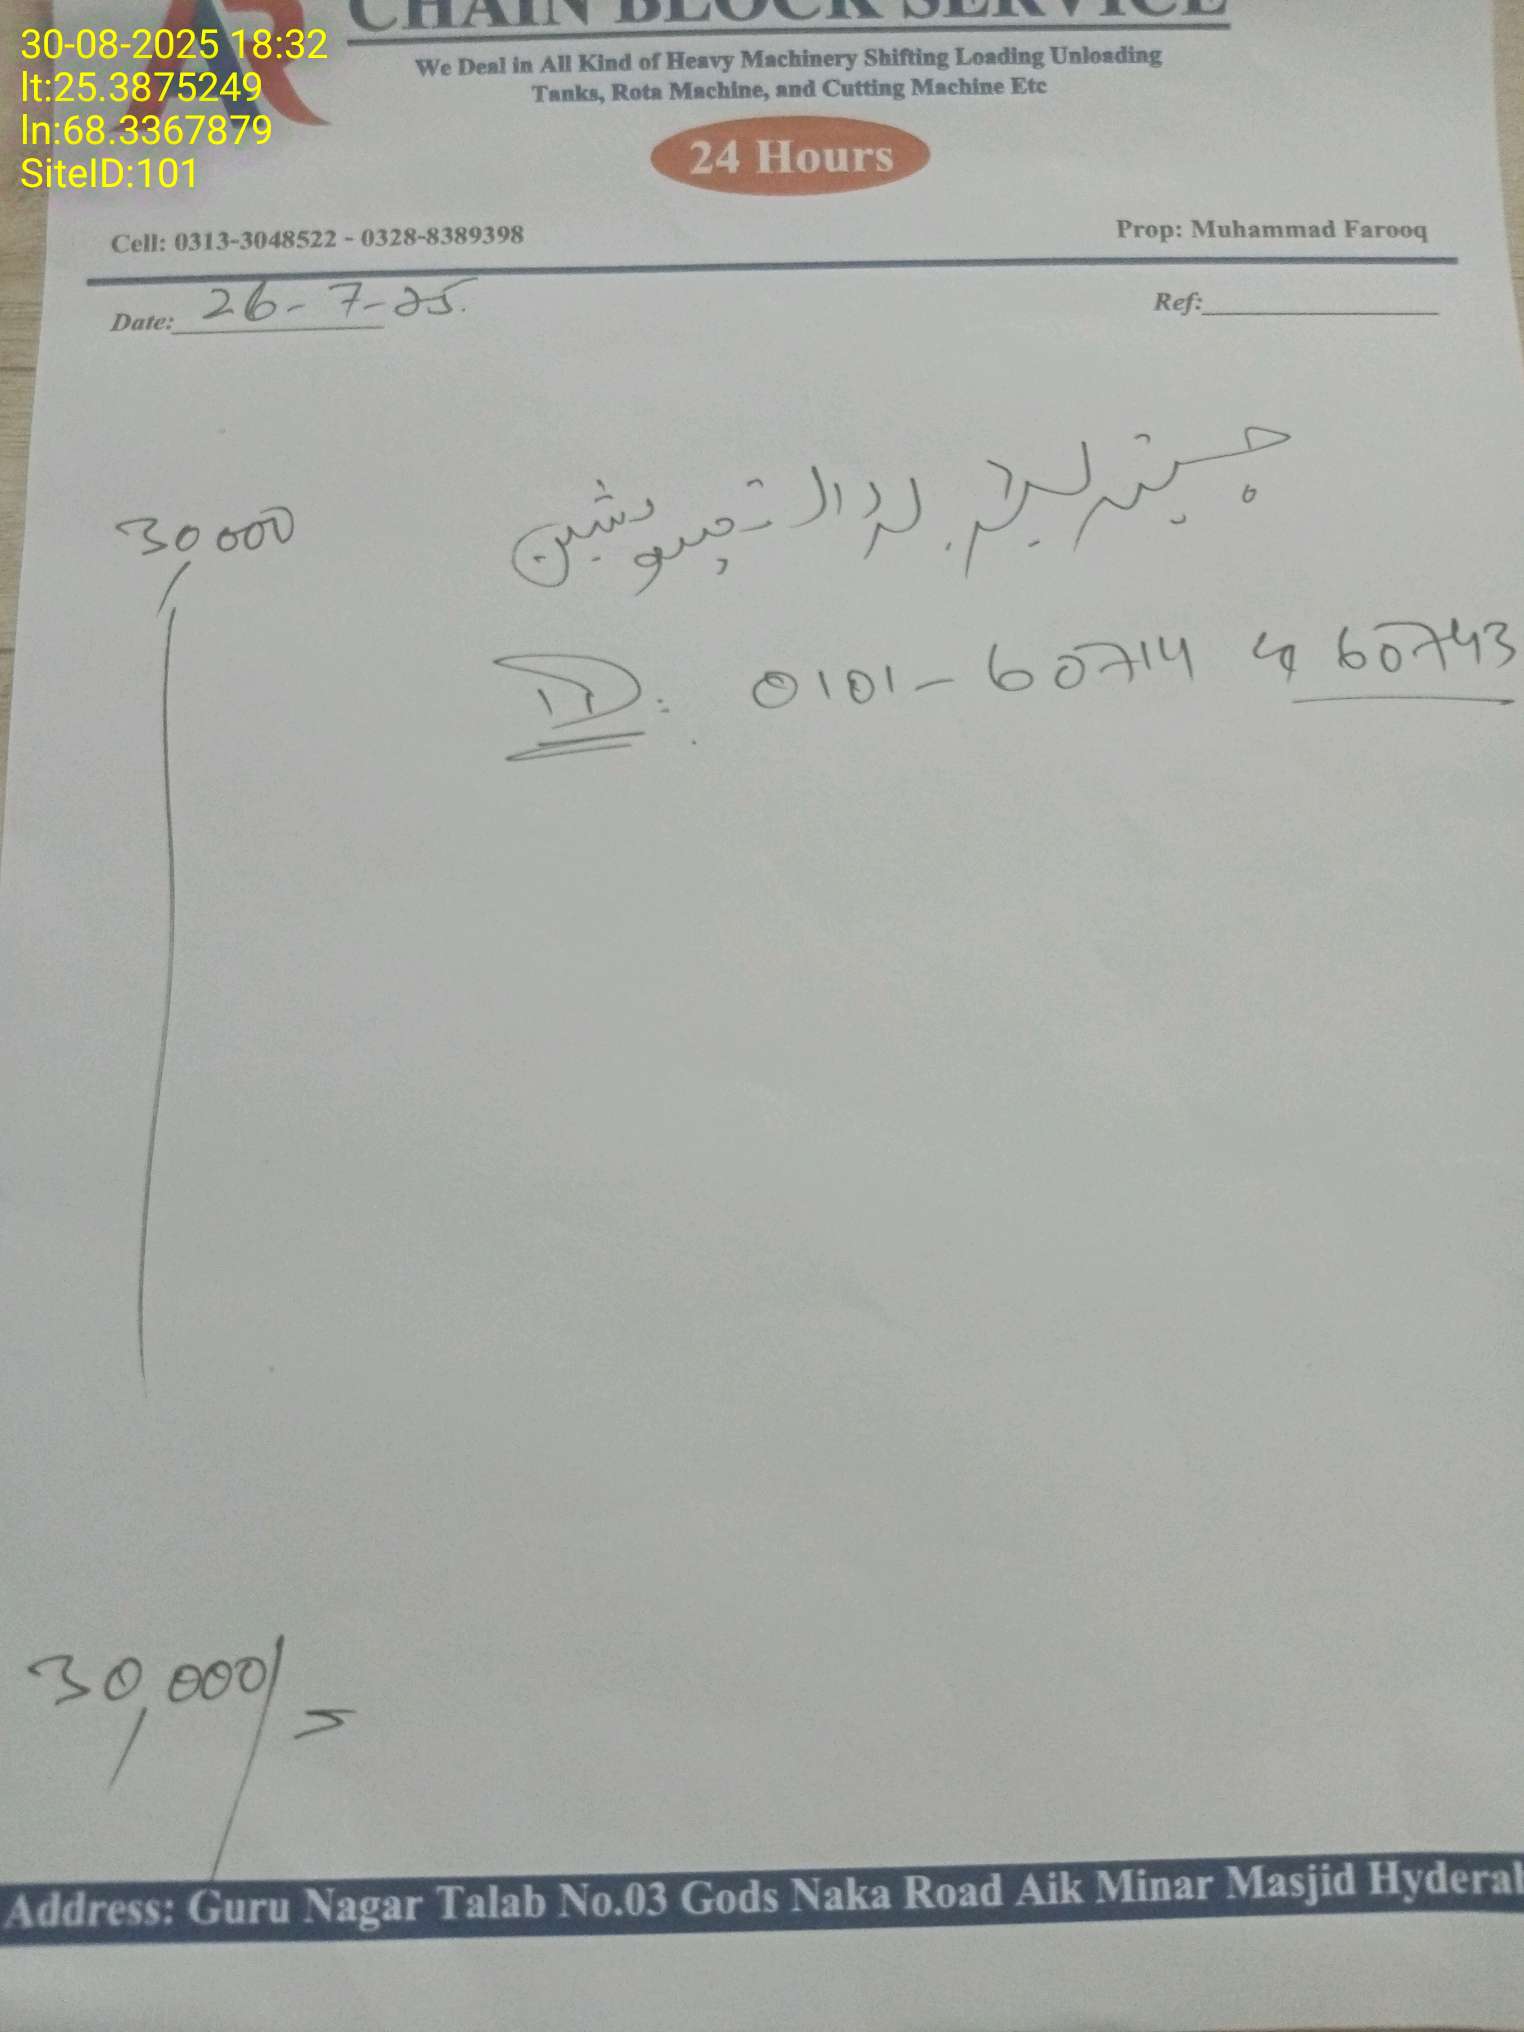 30-08-2025 18:32
lt:25.3875249
ln:68.3367879
SiteID:101
CHAIN BLOCK SERVICE
We Deal in All Kind of Heavy Machinery Shifting Loading Unloading
Tanks, Rota Machine, and Cutting Machine Etc
24 Hours
Cell: 0313-3048522 - 0328-8389398
Prop: Muhammad Farooq
Date: 26-7-25.
Ref:
30,000
ID: 0101-60714 & 60743
30,000/=
Address: Guru Nagar Talab No.03 Gods Naka Road Aik Minar Masjid Hyderab